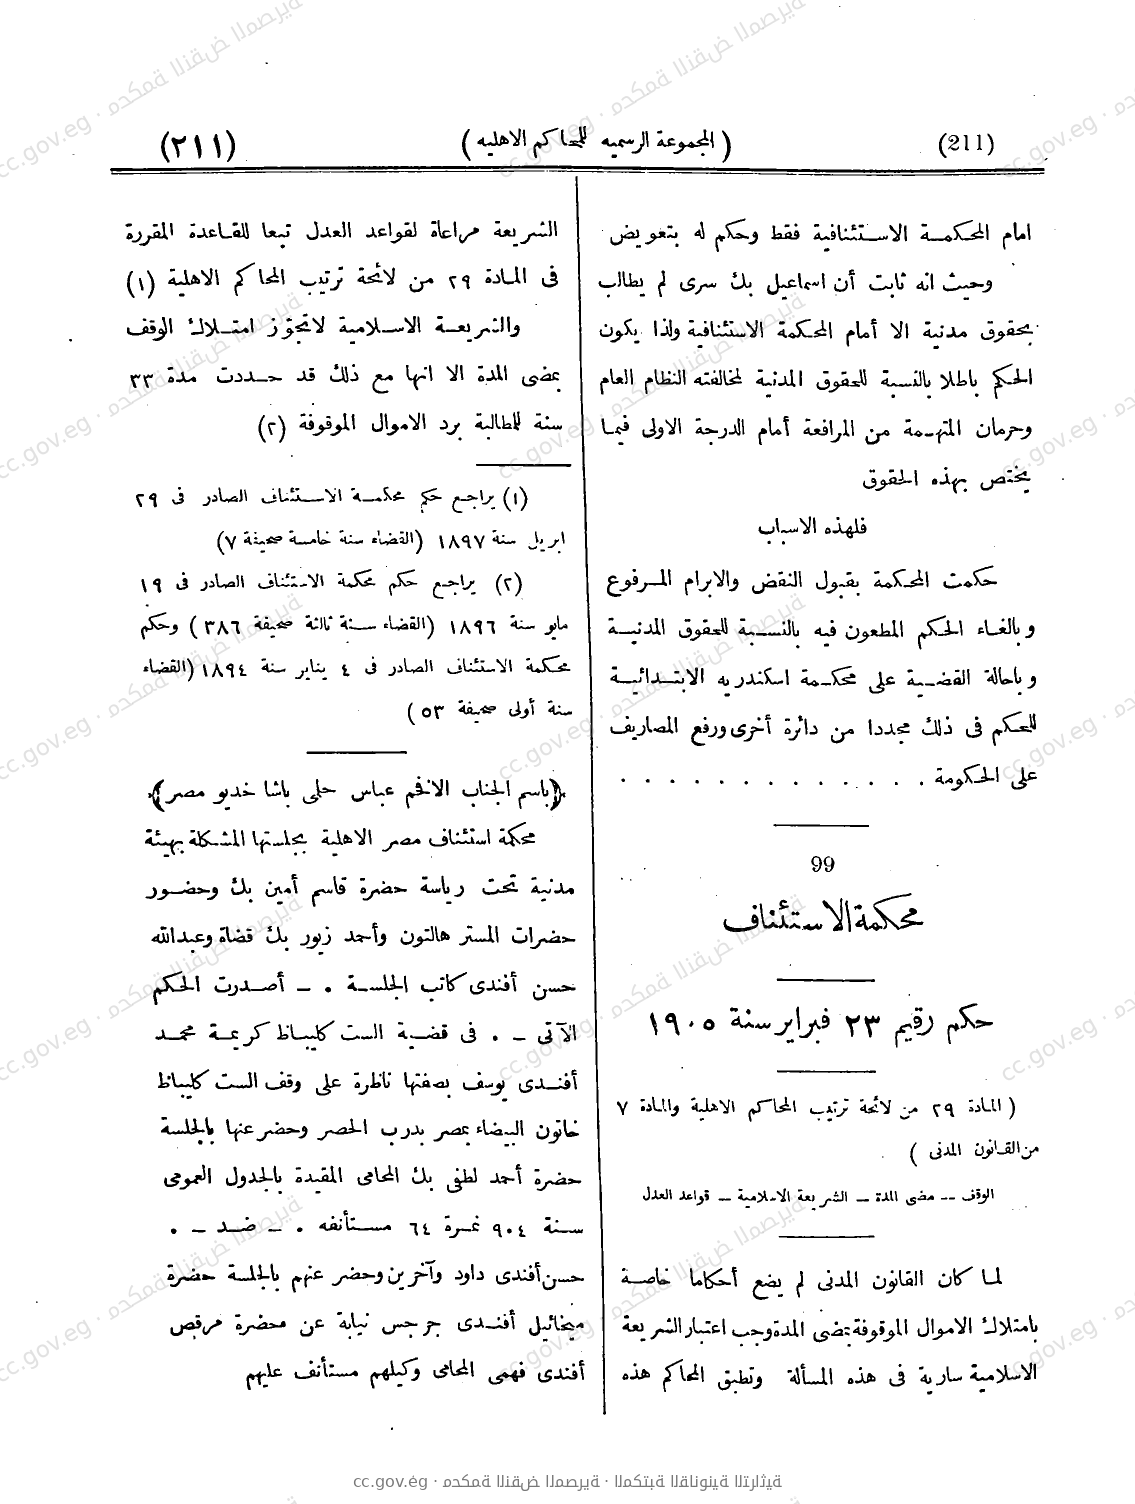 (٢١١) ( المجموعة الرسميه للمحاكم الاهليه ) (211)
امام المحكمة الاستئنافية فقط وحكم له بتعويض
وحيث انه ثابت أن اسماعيل بك سرى لم يطالب
بحقوق مدنية الا أمام المحكمة الاستئنافية ولذا يكون
الحكم باطلا بالنسبة للحقوق المدنية لمخالفته النظام العام
وحرمان المتهمة من المرافعة أمام الدرجة الاولى فيما
يختص بهذه الحقوق
فلهذه الاسباب
حكمت المحكمة بقبول النقض والابرام المرفوع
وبالغاء الحكم المطعون فيه بالنسبة للحقوق المدنية
وباحالة القضية على محكمة اسكندريه الابتدائية
للحكم فى ذلك مجددا من دائرة أخرى ورفع المصاريف
على الحكومة . . . . . . . . . . . . .
99
محكمة الاستئناف
حكم رقيم ٢٣ فبراير سنة ١٩٠٥
( المادة ٢٩ من لائحة ترتيب المحاكم الاهلية والمادة ٧
من القانون المدنى )
الوقف -- مضى المدة – الشريعة الاسلامية – قواعد العدل
لما كان القانون المدنى لم يضع أحكاما خاصة
بامتلاك الاموال الموقوفة بمضى المدة وجب اعتبار الشريعة
الاسلامية سارية فى هذه المسألة وتطبق المحاكم هذه
الشريعة مراعاة لقواعد العدل تبعا للقاعدة المقررة
فى المادة ٢٩ من لائحة ترتيب المحاكم الاهلية (١)
والشريعة الاسلامية لاتجوّز امتلاك الوقف
بمضى المدة الا انها مع ذلك قد حددت مدة ٣٣
سنة للمطالبة برد الاموال الموقوفة (٢)
(١) يراجع حكم محكمة الاستئناف الصادر فى ٢٩
ابريل سنة ١٨٩٧ (القضاء سنة خامسة صحيفة ٧)
(٢) يراجع حكم محكمة الاستئناف الصادر فى ١٩
مايو سنة ١٨٩٦ (القضاء سنة ثالثة صحيفة ٣٨٦) وحكم
محكمة الاستئناف الصادر فى ٤ يناير سنة ١٨٩٤ (القضاء
سنة أولى صحيفة ٥٣)
﴿باسم الجناب الافخم عباس حلمى باشا خديو مصر﴾
محكمة استئناف مصر الاهلية بجلستها المشكلة بهيئة
مدنية تحت رياسة حضرة قاسم أمين بك وحضور
حضرات المستر هالتون وأحمد زيور بك قضاة وعبدالله
حسن أفندى كاتب الجلسة . – أصدرت الحكم
الآتى – . فى قضية الست كليباظ كريمة محمد
أفندى يوسف بصفتها ناظرة على وقف الست كليباظ
خاتون البيضاء بمصر بدرب الحصر وحضر عنها بالجلسة
حضرة أحمد لطفى بك المحامى المقيدة بالجدول العمومى
سنة ٩٠٤ نمرة ٦٤ مستأنفه . – ضد – .
حسن أفندى داود وآخرين وحضر عنهم بالجلسة حضرة
ميخائيل أفندى جرجس نيابة عن محضرة مرقص
أفندى فهمى المحامى وكيلهم مستأنف عليهم
cc.gov.eg · محكمة النقض المصرية · المكتبة القانونية التراثية